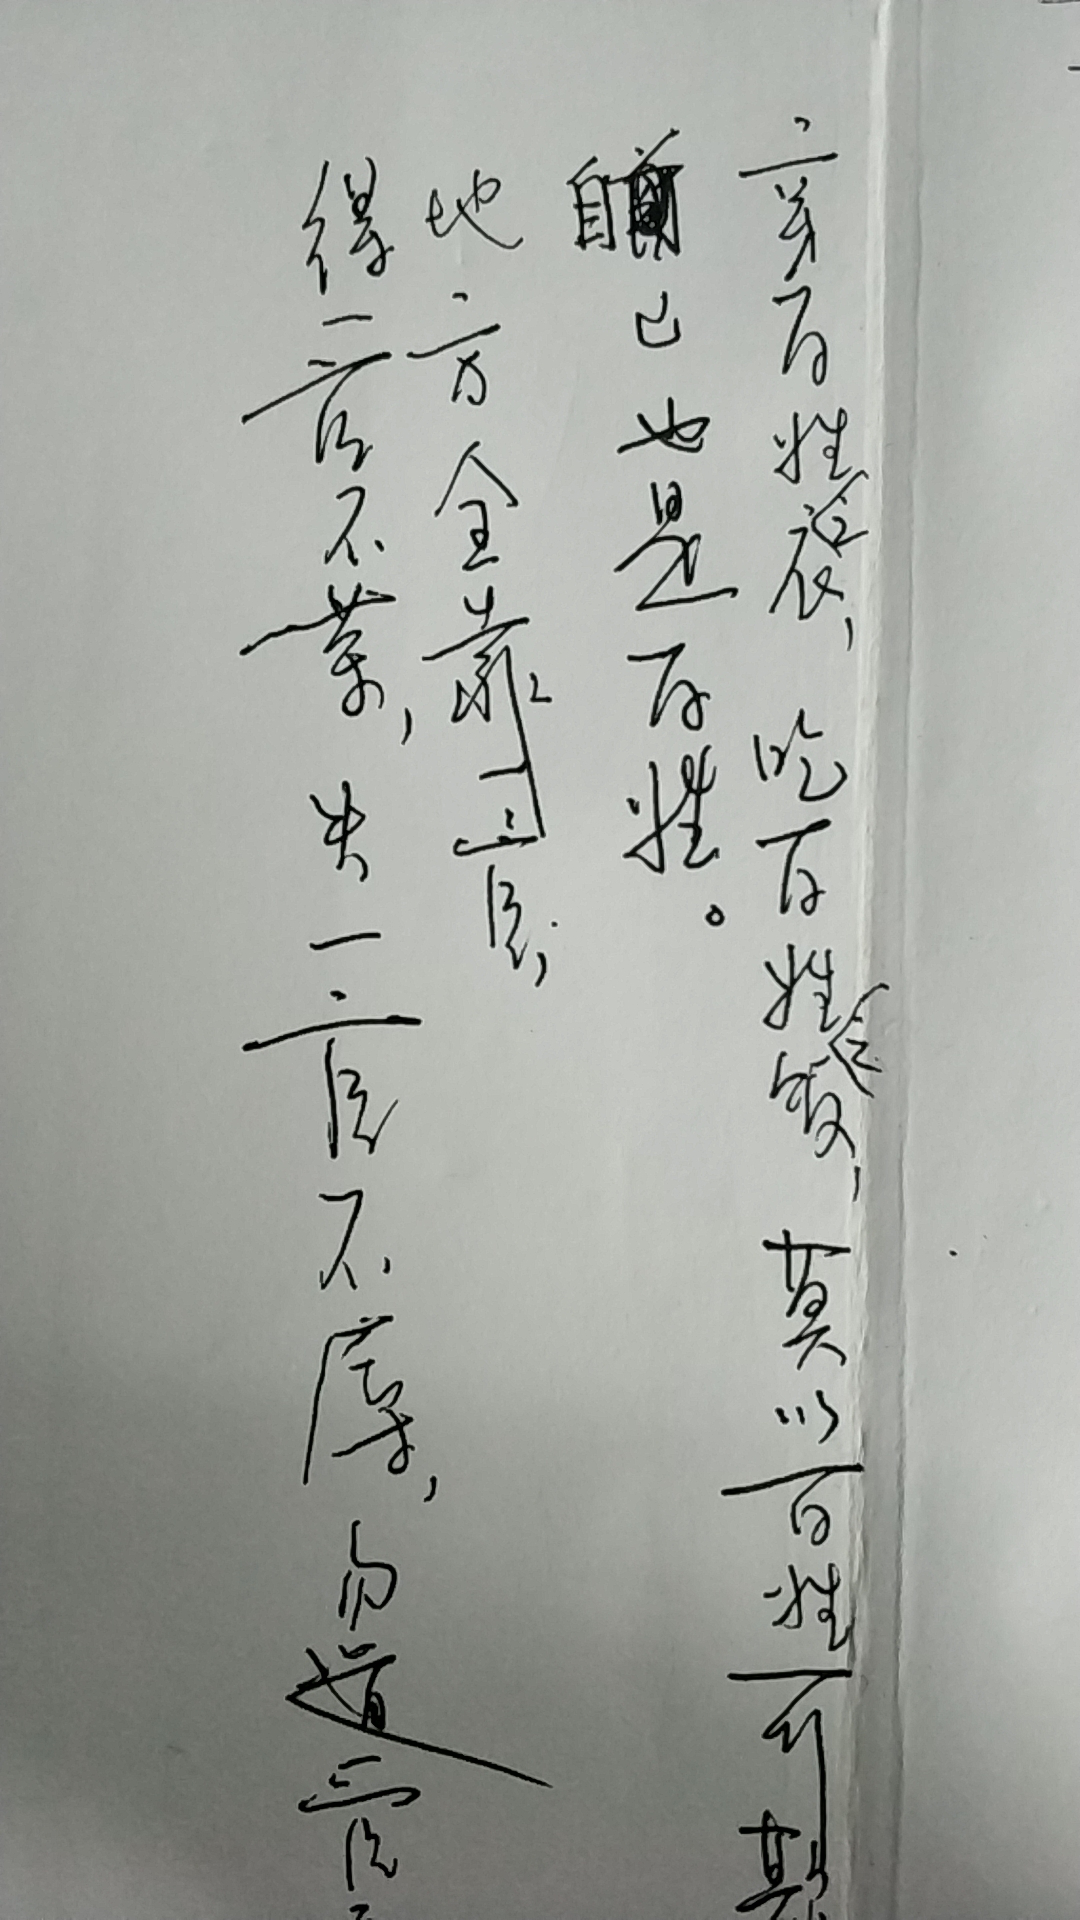 穿百姓之衣,吃百姓之饭,莫以百姓可欺
自己也是百姓。
得一官不荣,失一官不辱,勿道一官
地方全靠一官;